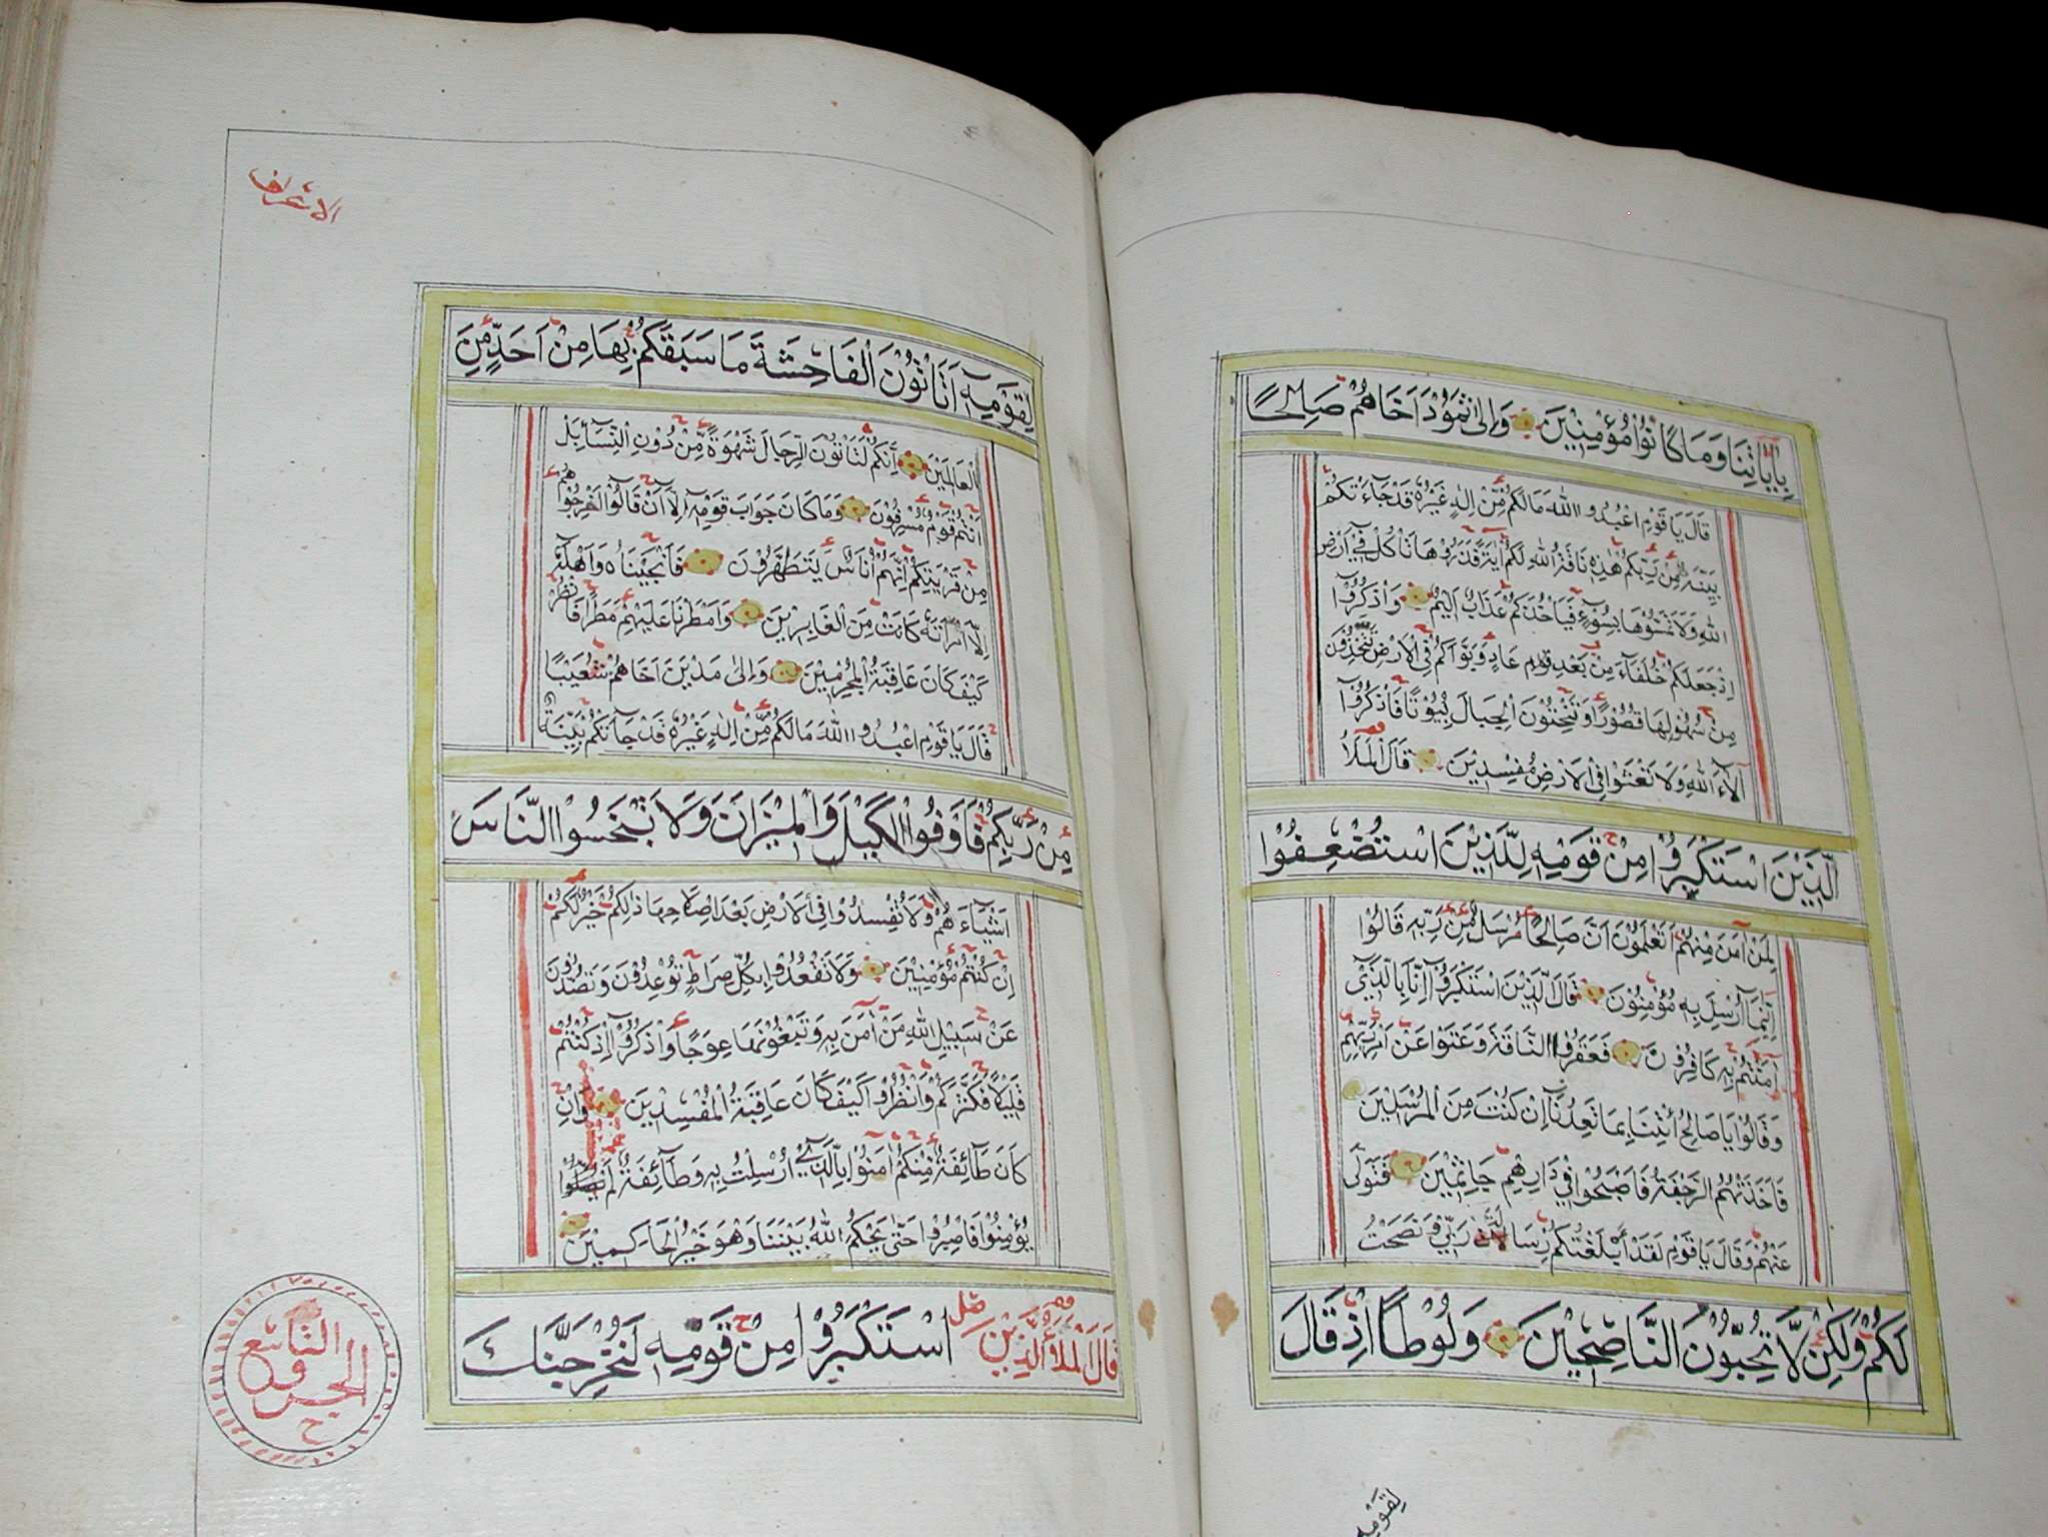 بِاٰيَاتِنَا وَمَا كَانُوا مُؤْمِنِيْنَ وَاِلٰى ثَمُوْدَ اَخَاهُمْ صَالِحًا
قَالَ يَا قَوْمِ اعْبُدُوا اللهَ مَا لَكُمْ مِّنْ اِلٰهٍ غَيْرُهٗ قَدْ جَآءَتْكُمْ
بَيِّنَةٌ مِّنْ رَّبِّكُمْ هٰذِهٖ نَاقَةُ اللهِ لَكُمْ اٰيَةً فَذَرُوْهَا تَاْكُلْ فِيْ اَرْضِ
اللهِ وَلَا تَمَسُّوْهَا بِسُوْٓءٍ فَيَاْخُذَكُمْ عَذَابٌ اَلِيْمٌ وَاذْكُرُوْٓا
اِذْ جَعَلَكُمْ خُلَفَآءَ مِنْ بَعْدِ قَوْمِ عَادٍ وَّبَوَّاَكُمْ فِي الْاَرْضِ تَتَّخِذُوْنَ
مِنْ سُهُوْلِهَا قُصُوْرًا وَّتَنْحِتُوْنَ الْجِبَالَ بُيُوْتًا فَاذْكُرُوْٓا
اٰلَآءَ اللهِ وَلَا تَعْثَوْا فِي الْاَرْضِ مُفْسِدِيْنَ قَالَ الْمَلَاُ
الَّذِيْنَ اسْتَكْبَرُوْا مِنْ قَوْمِهٖ لِلَّذِيْنَ اسْتُضْعِفُوْا
لِمَنْ اٰمَنَ مِنْهُمْ اَتَعْلَمُوْنَ اَنَّ صَالِحًا مُّرْسَلٌ مِّنْ رَّبِّهٖ قَالُوْا
اِنَّا بِمَآ اُرْسِلَ بِهٖ مُؤْمِنُوْنَ قَالَ الَّذِيْنَ اسْتَكْبَرُوْٓا اِنَّا بِالَّذِيْٓ
اٰمَنْتُمْ بِهٖ كَافِرُوْنَ فَعَقَرُوا النَّاقَةَ وَعَتَوْا عَنْ اَمْرِ رَبِّهِمْ
وَقَالُوْا يَا صَالِحُ ائْتِنَا بِمَا تَعِدُنَآ اِنْ كُنْتَ مِنَ الْمُرْسَلِيْنَ
فَاَخَذَتْهُمُ الرَّجْفَةُ فَاَصْبَحُوْا فِيْ دَارِهِمْ جَاثِمِيْنَ فَتَوَلّٰى
عَنْهُمْ وَقَالَ يَا قَوْمِ لَقَدْ اَبْلَغْتُكُمْ رِسَالَةَ رَبِّيْ وَنَصَحْتُ
لَكُمْ وَلٰكِنْ لَّا تُحِبُّوْنَ النَّاصِحِيْنَ وَلُوْطًا اِذْ قَالَ
لِقَوْمِهٖ
الاعراف
لِقَوْمِهٖٓ اَتَاْتُوْنَ الْفَاحِشَةَ مَا سَبَقَكُمْ بِهَا مِنْ اَحَدٍ مِّنَ
الْعَالَمِيْنَ اِنَّكُمْ لَتَاْتُوْنَ الرِّجَالَ شَهْوَةً مِّنْ دُوْنِ النِّسَآءِ بَلْ
اَنْتُمْ قَوْمٌ مُّسْرِفُوْنَ وَمَا كَانَ جَوَابَ قَوْمِهٖٓ اِلَّآ اَنْ قَالُوْٓا اَخْرِجُوْهُمْ
مِنْ قَرْيَتِكُمْ اِنَّهُمْ اُنَاسٌ يَّتَطَهَّرُوْنَ فَاَنْجَيْنَاهُ وَاَهْلَهٗٓ
اِلَّا امْرَاَتَهٗ كَانَتْ مِنَ الْغَابِرِيْنَ وَاَمْطَرْنَا عَلَيْهِمْ مَّطَرًا فَانْظُرْ
كَيْفَ كَانَ عَاقِبَةُ الْمُجْرِمِيْنَ وَاِلٰى مَدْيَنَ اَخَاهُمْ شُعَيْبًا
قَالَ يَا قَوْمِ اعْبُدُوا اللهَ مَا لَكُمْ مِّنْ اِلٰهٍ غَيْرُهٗ قَدْ جَآءَتْكُمْ بَيِّنَةٌ
مِّنْ رَّبِّكُمْ فَاَوْفُوا الْكَيْلَ وَالْمِيْزَانَ وَلَا تَبْخَسُوا النَّاسَ
اَشْيَآءَهُمْ وَلَا تُفْسِدُوْا فِي الْاَرْضِ بَعْدَ اِصْلَاحِهَا ذٰلِكُمْ خَيْرٌ لَّكُمْ
اِنْ كُنْتُمْ مُّؤْمِنِيْنَ وَلَا تَقْعُدُوْا بِكُلِّ صِرَاطٍ تُوْعِدُوْنَ وَتَصُدُّوْنَ
عَنْ سَبِيْلِ اللهِ مَنْ اٰمَنَ بِهٖ وَتَبْغُوْنَهَا عِوَجًا وَاذْكُرُوْٓا اِذْ كُنْتُمْ
قَلِيْلًا فَكَثَّرَكُمْ وَانْظُرُوْا كَيْفَ كَانَ عَاقِبَةُ الْمُفْسِدِيْنَ وَاِنْ
كَانَ طَآئِفَةٌ مِّنْكُمْ اٰمَنُوْا بِالَّذِيْٓ اُرْسِلْتُ بِهٖ وَطَآئِفَةٌ لَّمْ
يُؤْمِنُوْا فَاصْبِرُوْا حَتّٰى يَحْكُمَ اللهُ بَيْنَنَا وَهُوَ خَيْرُ الْحَاكِمِيْنَ
قَالَ الْمَلَاُ الَّذِيْنَ اسْتَكْبَرُوْا مِنْ قَوْمِهٖ لَنُخْرِجَنَّكَ
التاسع
الجزو